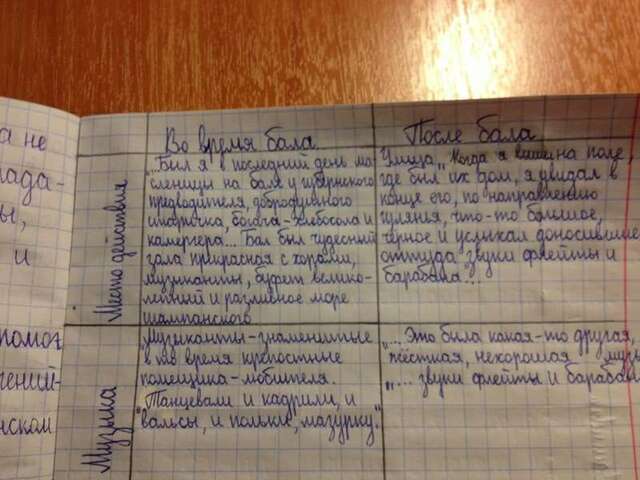 а не
ада-
ы,
и
помог
чений-
нском
Во время бала
После бала
Место действия
„...Был я в последний день ма-
сленицы на бале у губернского
предводителя, добродушного
старичка, богача-хлебосола и
камергера... Бал был чудесный
зала прекрасная с хорами,
музыканты, буфет велико-
лепный и разливное море
шампанского
Улица „Когда я вышел на поле,
где был их дом, я увидал в
конце его, по направлению
гулянья, что-то большое,
чёрное и услыхал доносившиеся
оттуда звуки флейты и
барабана..."
Музыка
Музыканты-знаменитые
в то время крепостные
помещика-любителя.
"Танцевали и кадрили, и
вальсы, и польки, мазурку."
„...Это была какая-то другая,
жёсткая, нехорошая музы
„... звуки флейты и барабан